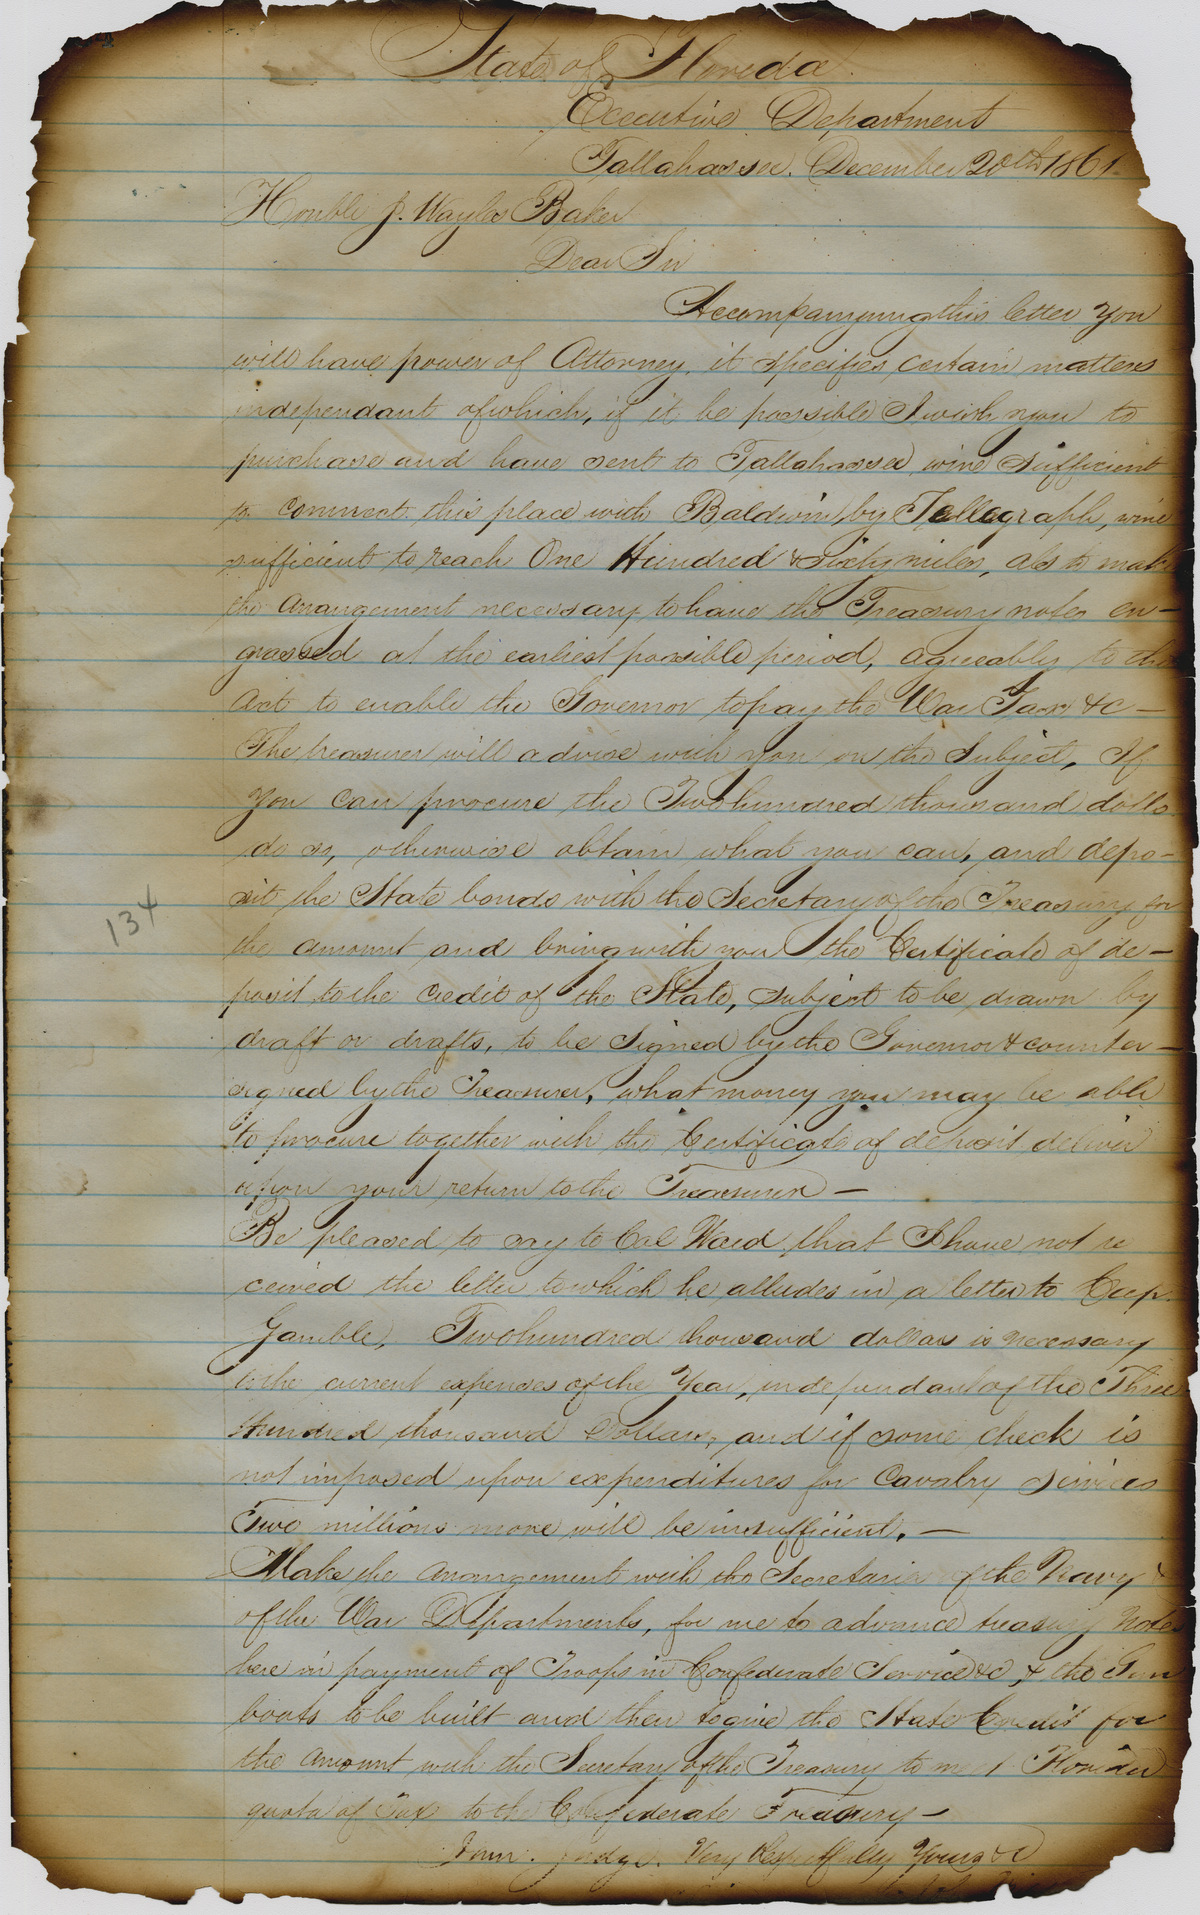 State of Florida.
Executive Department
Tallahassee. December 20th 1861.
Honble J. Wayles Baker
Dear Sir
Accompanying this letter you
will have power of Attorney. it specifies certain matters
independant of which, if it be possible I wish you to
purchase and have sent to Tallahassee, wire Sufficient
to connect this place with Baldwin, by Tellegraph, wire
sufficient to reach One Hundred & sixty miles, also to make
the Arrangement necessary to have the Treasury notes en-
grossed at the earliest possible period, agreeably to the
Act to enable the Governor to pay the War Tax &c -
The treasurer will advise with you on the Subject, If
you can procure the Two hundred thousand dolls
do so, otherwise obtain what you can, and depo-
sit the State bonds with the Secretary of the Treasury for
the amount and bring with you the Certificate of de-
posit to the credit of the State, subject to be drawn by
draft or drafts, to be Signed by the Governor & counter-
signed by the Treasurer, what money you may be able
to procure together with the Certificate of deposit deliver
upon your return to the Treasurer -
Be pleased to say to Col Ward that I have not re
ceived the letter to which he alludes in a letter to
Gamble, Two hundred thousand dollars is necessary
to the current expenses of the Year, independant of the Three
Hundred thousand Dollars, and if some check is
not imposed upon expenditures for Cavalry services
Two millions more will be insufficient. -
Make the arrangement with the Secretaries of the Navy &
of the War Departments, for me to advance treasury notes
here in payment of Troops in Confederate Service &c, & the Gun
boats to be built and then to give the State Credit for
the amount with the Secretary of the Treasury to meet Florida
quota of Tax to the Confederate Treasury -
Judge. Very Respectfully Yours &c
134